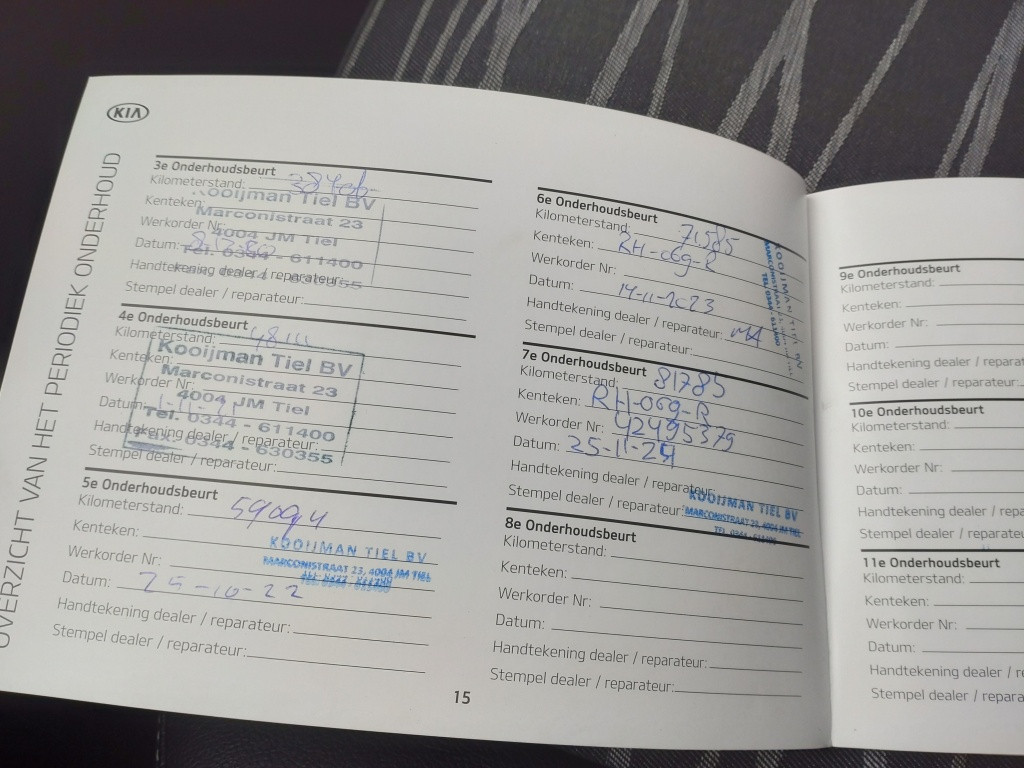 KIA
OVERZICHT VAN HET PERIODIEK ONDERHOUD
3e Onderhoudsbeurt
Kilometerstand:
Kooijman Tiel BV
Kenteken:
Marconistraat 23
Werkorder Nr:
4004 JM Tiel
Datum:
Tel. 0344 - 611400
Handtekening dealer / reparateur:
Stempel dealer / reparateur:
4e Onderhoudsbeurt
Kilometerstand:
Kooijman Tiel BV
Kenteken:
Marconistraat 23
Werkorder Nr:
4004 JM Tiel
Datum:
Tel. 0344 - 611400
Handtekening dealer / reparateur:
Fax. 0344 - 630355
Stempel dealer / reparateur:
5e Onderhoudsbeurt
Kilometerstand: 59094
Kenteken:
KOOIJMAN TIEL BV
Werkorder Nr:
MARCONISTRAAT 23, 4004 JM TIEL
Datum: 25-10-22
Handtekening dealer / reparateur:
Stempel dealer / reparateur:
15
6e Onderhoudsbeurt
Kilometerstand: 71585
Kenteken: RH-069-R
Werkorder Nr:
Datum: 14-11-2023
Handtekening dealer / reparateur:
Stempel dealer / reparateur:
7e Onderhoudsbeurt
Kilometerstand: 81785
Kenteken: RH-069-R
Werkorder Nr: 42495379
Datum: 25-11-24
Handtekening dealer / reparateur:
Stempel dealer / reparateur:
KOOIJMAN TIEL BV
MARCONISTRAAT 23, 4004 JM TIEL
TEL. 0344 - 611400
8e Onderhoudsbeurt
Kilometerstand:
Kenteken:
Werkorder Nr:
Datum:
Handtekening dealer / reparateur:
Stempel dealer / reparateur:
9e Onderhoudsbeurt
Kilometerstand:
Kenteken:
Werkorder Nr:
Datum:
Handtekening dealer / reparat
Stempel dealer / reparateur
10e Onderhoudsbeurt
Kilometerstand:
Kenteken:
Werkorder Nr:
Datum:
Handtekening dealer / repara
Stempel dealer / reparateu
11e Onderhoudsbeurt
Kilometerstand:
Kenteken:
Werkorder Nr:
Datum:
Handtekening dealer / r
Stempel dealer / repara